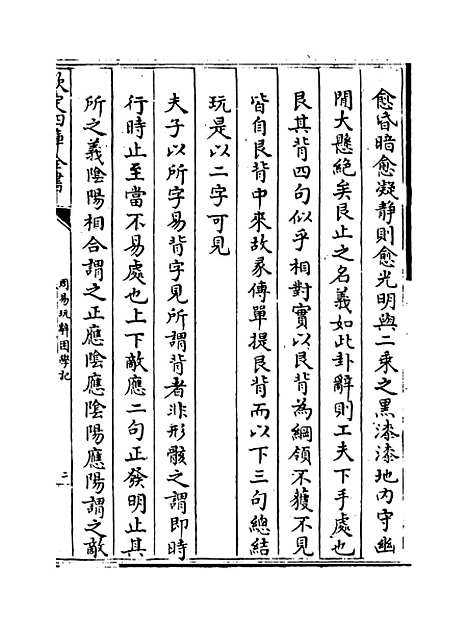 愈昏暗愈凝静則愈光明與二乘之黑漆漆地内守幽
閒大懸絶矣艮止之名義如此卦辭則工夫下手處也
艮其背四句似乎相對實以艮背為綱領不獲不見
皆自艮背中來故彖傳單提艮背而以下三句總結
玩是以二字可見
夫子以所字易背字見所謂背者非形骸之謂即時
行時止至當不易處也上下敵應二句正發明止其
所之義陰陽相合謂之正應陰應陰陽應陽謂之敵
欽定四庫全書
周易玩辭困學記